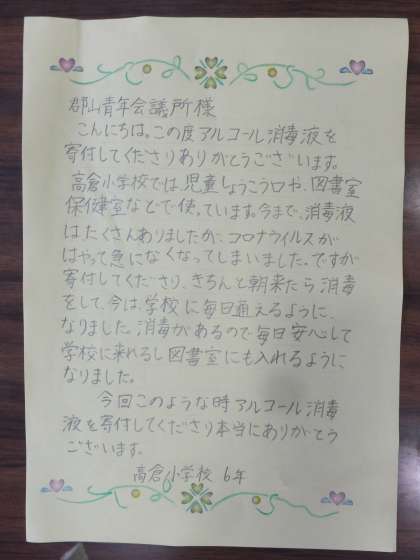 郡山青年会議所様
こんにちは。この度アルコール消毒液を
寄付してくださりありがとうございます。
高倉小学校では、児童しょうこう口や、図書室
保健室などで使っています。今まで、消毒液
はたくさんありましたが、コロナウイルスが
はやって急になくなってしまいました。ですが
寄付してくださり、きちんと朝来たら消毒
をして、今は、学校に毎日通えるように、
なりました。消毒があるので毎日安心して
学校に来れるし図書室にも入れるように
なりました。
今回このような時アルコール消毒
液を寄付してくださり本当にありがとう
ございます。
高倉小学校 6年